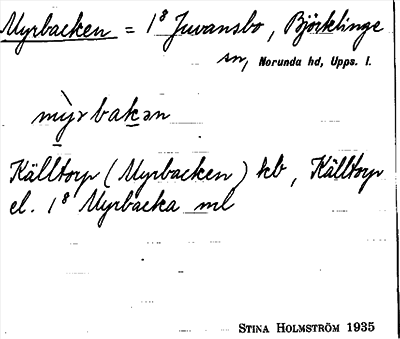 Myrbacken = 1⁸ Juvansbo, Björklinge
sn, Norunda hd, Upps. l.
mỳrbakən
Källtorp (Myrbacken) kb, Källtorp
el. 1⁸ Myrbacka ml
STINA HOLMSTRÖM 1935